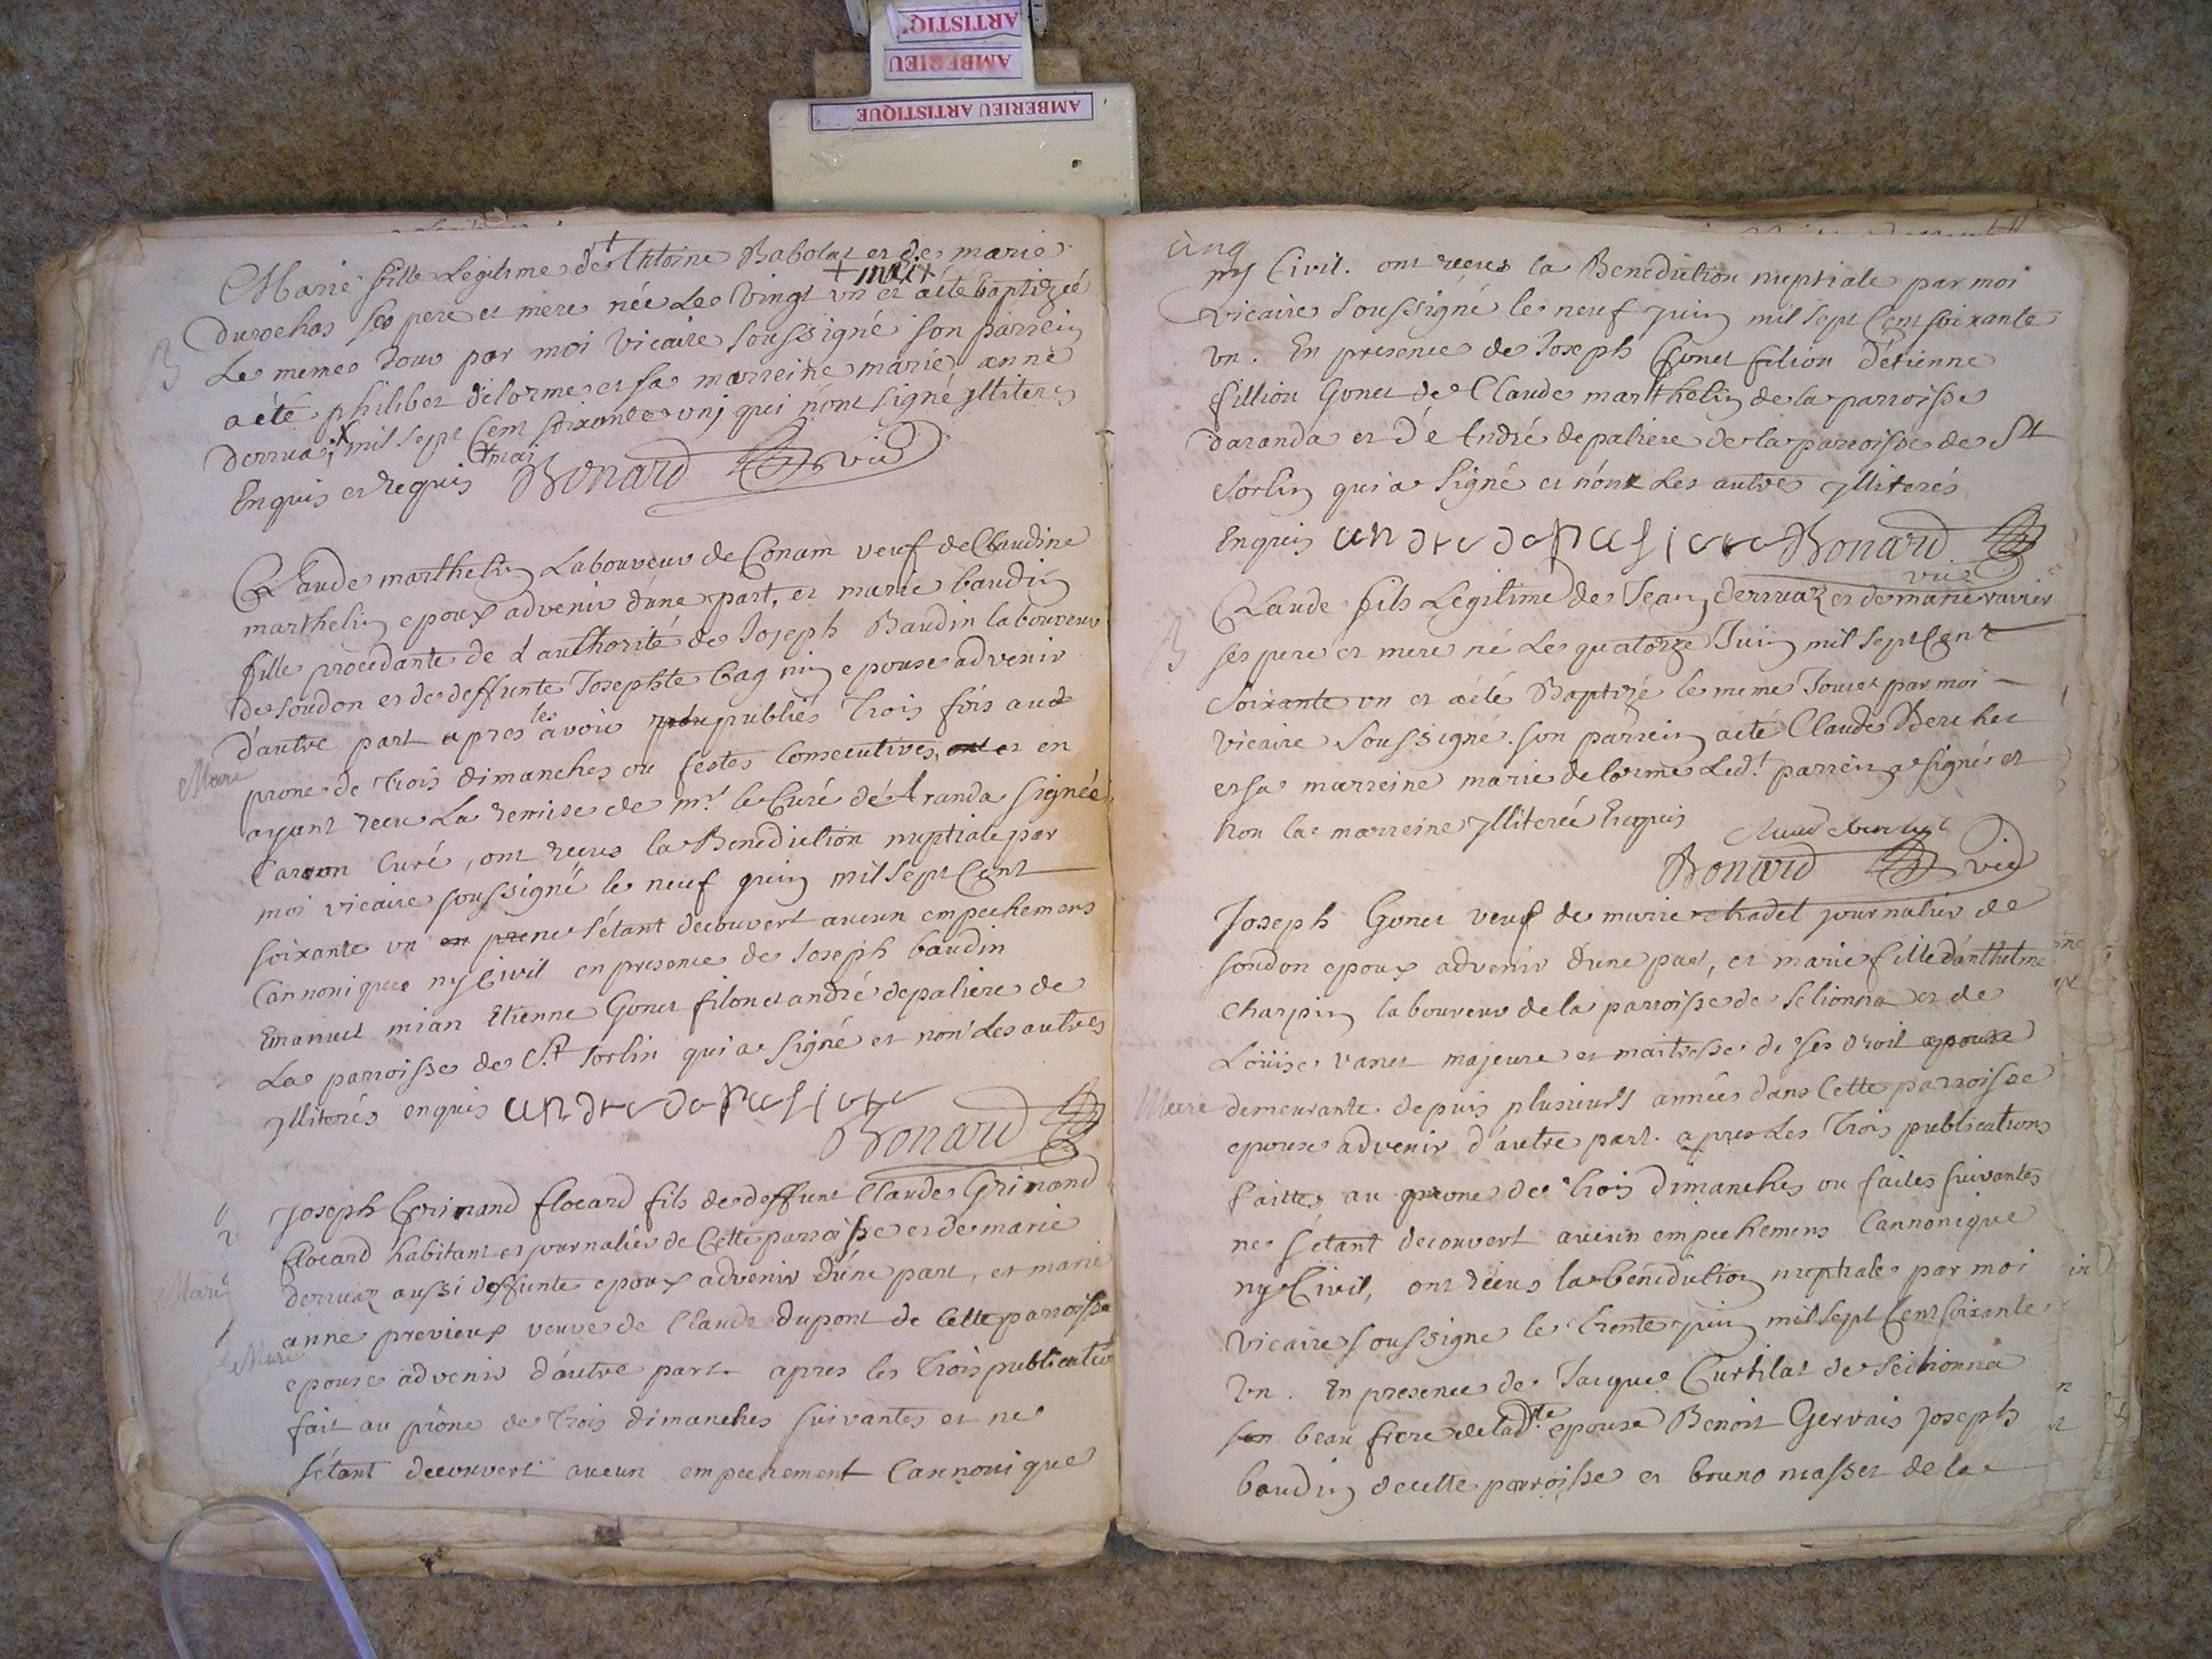 ARTISTIQ
AMBERIEU
AMBERIEU ARTISTIQUE
Marie fille Legitime de Anthoine Babolat et de marie
+ mai +
durochas ses pere et mere née Le vingt un et a été baptizeé
B
Le meme Jour par moi vicaire soussigné son parrein
a été philiber delorme et sa marreine marie anne
derruaz, mil sept Cent soixante unj qui n'ont signé ylliteres
+ mai
Enquis et Requis Bonard vic
Claude marthelin Laboureur de Conam veuf de Claudine
marthelin epoux advenir d'une part, et marie baudin
fille procedante de L'authorité de Joseph Baudin laboureur
de soudon et de deffunte Josephte Gagnin epouse advenir
d'autre part apres les avoir publiés trois fois aux
Mari
prone de trois dimanches ou festes Consecutives, et en
ayant receu La remise de mr. le Curé de Aranda signeé
Carron Curé, ont receus la Benediction nuptiale par
moi vicaire soussigné le neuf juin mil sept Cent
soixante un ne s'étant decouvert aucun empechemens
Cannonique ny Civil en presence de Joseph baudin
Emanuel mian Etienne Gonet filon et andré depaliere de
La parroisse de St. sorlin qui a signé et non Les autres
ylliterés enquis andre depaliere
Bonard
Joseph Grimand flocard fils de deffunt Claude Grimand
flocard habitant et journalier de Cette parroisse et de marie
Mari
derruaz aussi deffunte epoux advenir d'une part, et marie
anne previeux veuve de Claude dupont de Cette parroisse
Mari
epouse advenir d'autre part. apres les trois publication
fait au prône de trois dimanches suivantes et ne
s'étant decouvert aucun empechement Cannonique
cinq
ny Civil. ont receus la Benediction nuptiale par moi
vicaire soussigné le neuf juin mil sept Cent soixante
un. En presence de Joseph Gonet filion d'étienne
fillion Gonet de Claude marthelin de la parroisse
daranda et dé André depaliere de la parroisse de St
sorlin qui a signé et n'ont Les autres ylliterés
Enquis andre depaliere Bonard
vic
Claude fils Legitime de Jean derruaz et de marie ravier
B
ses pere et mere né Le quatorze Juin mil sept Cent
soixante un et a été Baptizé le meme Jour et par moi
vicaire soussigné. son parrein a été Claude Berchet
et sa marreine marie delorme Led.t parrein a signé et
Non la marreine ylliterée Enquis
Bonard vic
Joseph Gonet veuf de marie chadel journalier de
soudon epoux advenir d'une part, et marie fille d'anthelme
charpin laboureur de la parroisse de selionna et de
Loüise vanet majeure et maitresse de ses droit epouse
Mari
demeurante depuis plusieurs années dans Cette parroisse
epouse advenir d'autre part. apres Les trois publications
faittes au prone de trois dimanches ou faites suivantes
ne s'étant decouvert aucun empechemens Cannonique
ny Civil, ont receus la bénédiction nuptiale par moi
vicaire soussigne le trente juin mil sept Cent soixante
un. En presence de Jacque Curtilat de Seilionna
son beau frere de lad.te epouse Benoit Gervais Joseph
baudin de cette parroisse et bruno masset de la